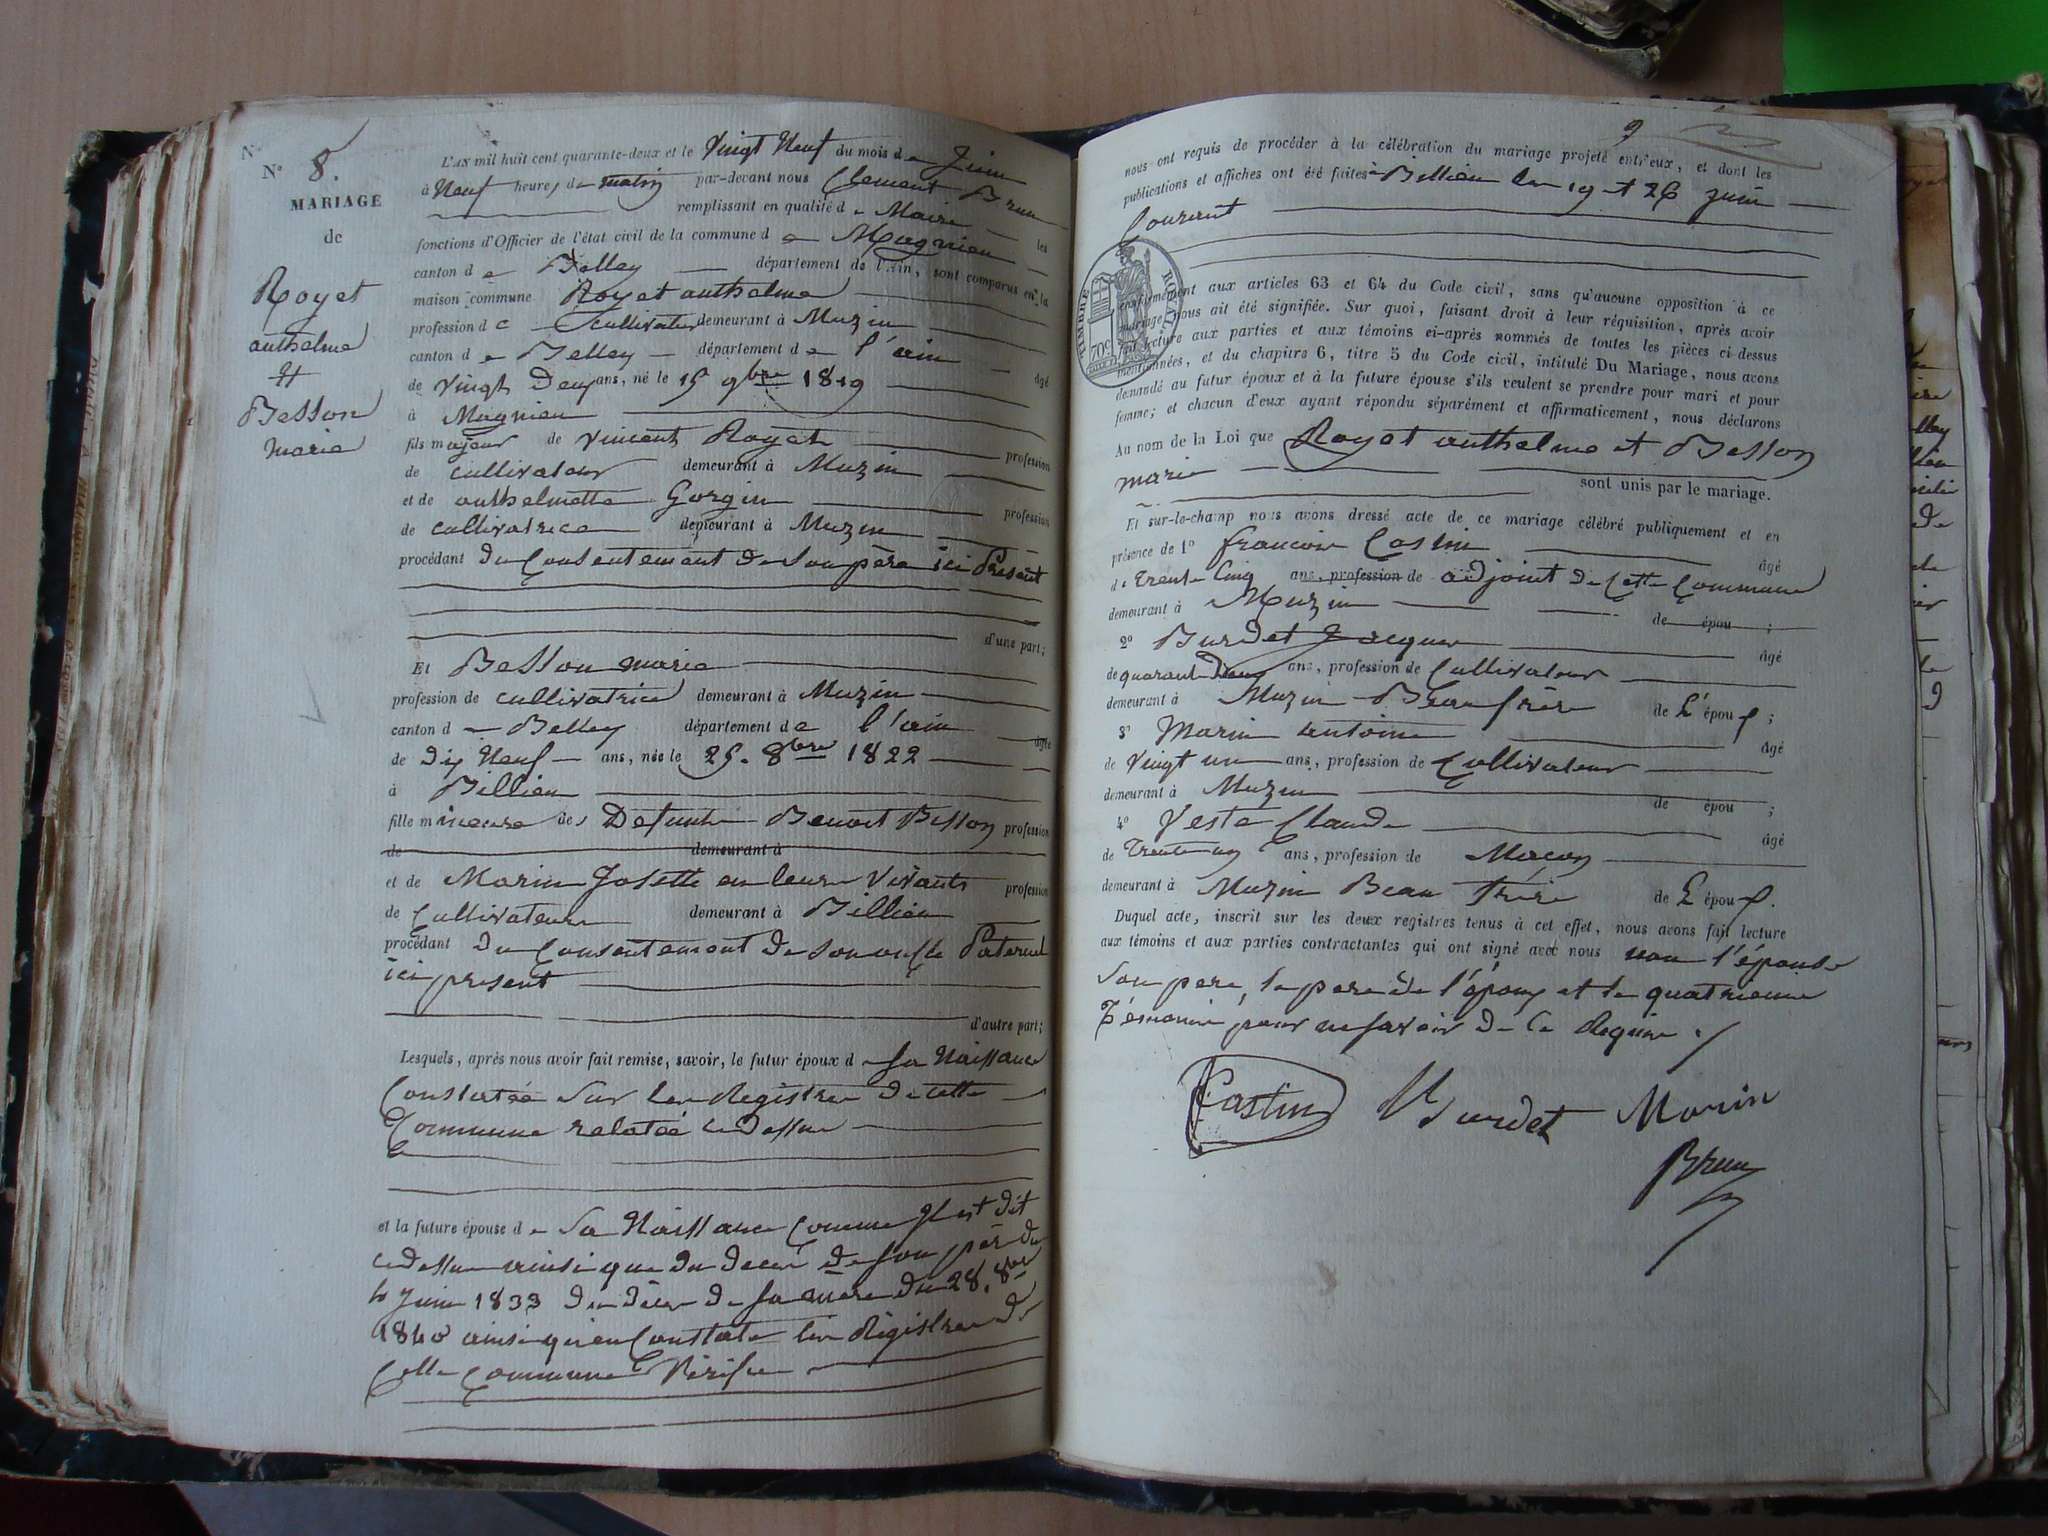 N° 8.
MARIAGE
de
Royet
anthelme
et
Besson
marie
L'AN mil huit cent quarante-deux et le Vingt Neuf du mois de Juin
à Neuf heures de matin par-devant nous Clement Brun
remplissant en qualité de Maire les
fonctions d'Officier de l'état civil de la commune de Magnieu
canton de Belley département de l'Ain, sont comparus en la
maison commune Royet anthelme
profession de Cultivateur demeurant à Muzin
canton de Belley département de l'ain âgé
de Vingt Deux ans, né le 15 9bre 1819
à Magnieu
fils majeur de Vincent Royet profession
de cultivateur demeurant à Muzin
et de anthelmette Gorgin profession
de cultivatrice demeurant à Muzin
procédant du Consentement de son père ici Présent
d'une part;
Et Besson marie
profession de cultivatrice demeurant à Muzin
canton de Belley département de l'ain âgée
de Dix Neuf ans, née le 25. 8bre 1822
à Billieu
fille mineure des Defunts Benoit Besson profession
de demeurant à
et de Morin Josette en leurs Vivants profession
de Cultivateurs demeurant à Billieu
procédant du Consentement de son oncle Paternel
ici present
d'autre part;
Lesquels, après nous avoir fait remise, savoir, le futur époux de sa Naissance
Constatée sur les Registres de cette
Commune relatée ci Dessus
et la future épouse de sa Naissance Comme Il est dit
ci dessus ainsi que du decès de son père du
4 Juin 1833 du décès de sa mère du 28. 8bre
1840 ainsi qu'en Constate les Régistres de
Cette Commune
9
nous ont requis de procéder à la célébration du mariage projeté entr'eux, et dont les
publications et affiches ont été faites à Billieu les 19 et 26 juin
Courant
TIMBRE ROYAL
70c
conformément aux articles 63 et 64 du Code civil, sans qu'aucune opposition à ce
mariage nous ait été signifiée. Sur quoi, faisant droit à leur réquisition, après avoir
fait lecture aux parties et aux témoins ci-après nommés de toutes les pièces ci-dessus
mentionnées, et du chapitre 6, titre 5 du Code civil, intitulé Du Mariage, nous avons
demandé au futur époux et à la future épouse s'ils veulent se prendre pour mari et pour
femme; et chacun d'eux ayant répondu séparément et affirmativement, nous déclarons
Au nom de la Loi que Royet anthelme et Besson
marie
sont unis par le mariage.
Et sur-le-champ nous avons dressé acte de ce mariage célébré publiquement et en
présence de 1° francois Castin âgé
de trente Cinq ans, profession de adjoint de Cette Commune
demeurant à Muzin de épou ;
2° Burdet Jacques âgé
de quarante Deux ans, profession de Cultivateur
demeurant à Muzin Beau frère de L'époux ;
3° Marin antoine âgé
de Vingt un ans, profession de Cultivateur
demeurant à Muzin de épou ;
4° Veste Claude âgé
de Trente un ans, profession de Maçon
demeurant à Muzin Beau frère de L'époux.
Duquel acte, inscrit sur les deux registres tenus à cet effet, nous avons fait lecture
aux témoins et aux parties contractantes qui ont signé avec nous non l'épouse
Son pere, le pere de l'époux et le quatrieme
Témoin pour ne savoir de Ce Requis
Castin Burdet Morin
Brun